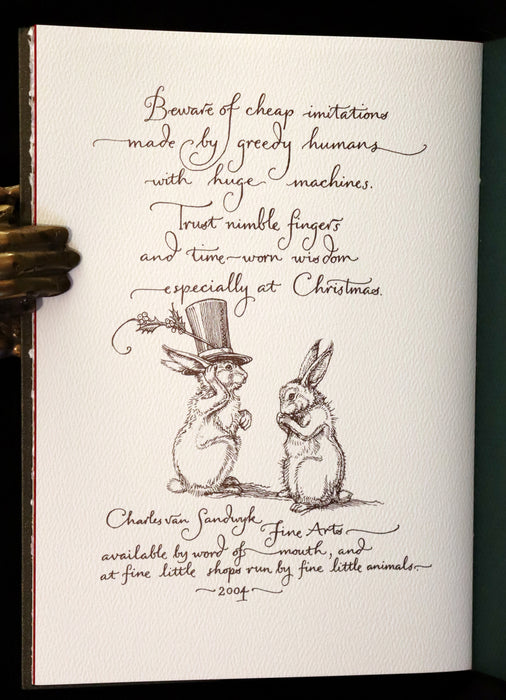 Beware of cheap imitations
made by greedy humans
with huge machines.
Trust nimble fingers
and time-worn wisdom
especially at Christmas.
Charles van Sandwyk Fine Arts
available by word of mouth, and
at fine little shops run by fine little animals.
~2004~